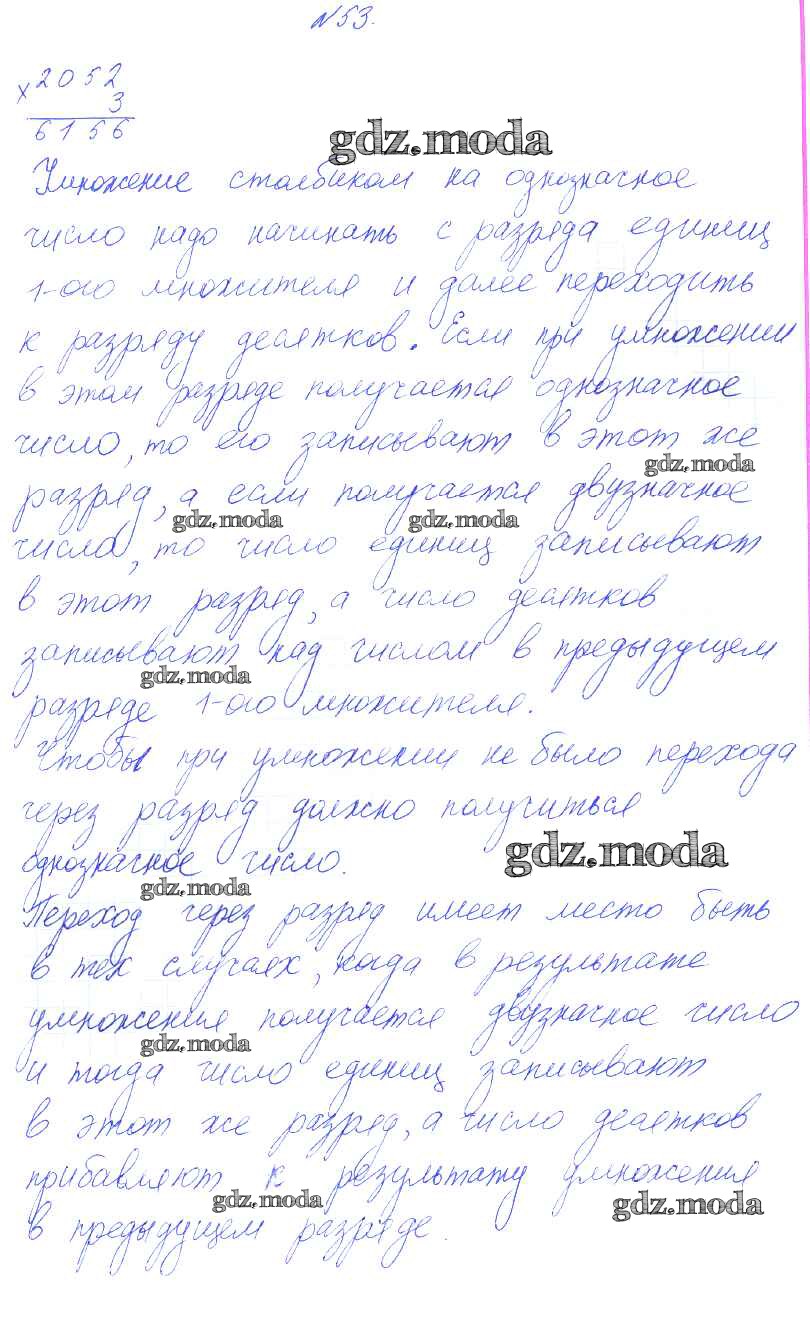 №53.
× 2052
3
6156
gdz.moda
Умножение столбиком на однозначное
число надо начинать с разряда единиц
1-ого множителя и далее переходить
к разряду десятков. Если при умножении
в этом разряде получается однозначное
число, то его записывают в этот же
gdz.moda
разряд, а если получается двузначное
gdz.moda gdz.moda
числа, то число единиц записывают
в этот разряд, а число десятков
записывают над числом в предыдущем
gdz.moda
разряде 1-ого множителя.
Чтобы при умножении не было перехода
через разряд должно получиться
однозначное число.
gdz.moda
gdz.moda
Переход через разряд имеет место быть
в тех случаях, когда в результате
умножения получается двузначное число
gdz.moda
и тогда число единиц записывают
в этот же разряд, а число десятков
прибавляют к результату умножения
gdz.moda gdz.moda
в предыдущем разряде.